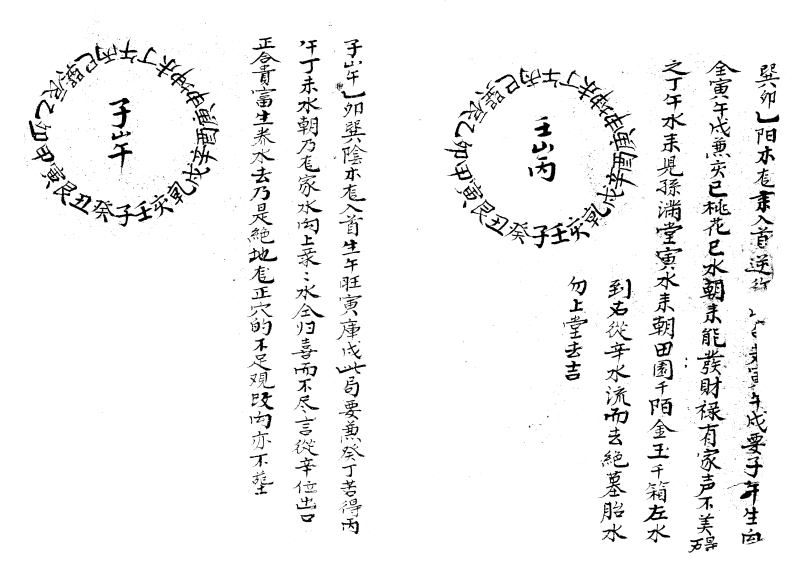 巽卯乙陽木龙来入首逆行 寅午戌要子年生向
全寅午戌兼亥巳桃花巳水朝来能發財禄有家声不美碍
之丁午水来児孫満堂寅水来朝田園千陌金玉千箱左水
到右從辛水流而去絶墓胎水
勿上堂去吉
壬山丙
子癸丑艮寅甲卯乙辰巽巳丙午丁未坤申庚酉辛戌乾亥壬
子山午乙卯巽陰木龙入首生午旺寅庫戌此局要兼癸丁苦得丙
午丁未水朝乃龙家水向上衆〻水全归喜而不尽言從辛位出口
正合貴富生养水去乃是絶地龙正穴的不足观改向亦不\葬
子山午
子癸丑艮寅甲卯乙辰巽巳丙午丁未坤申庚酉辛戌乾亥壬